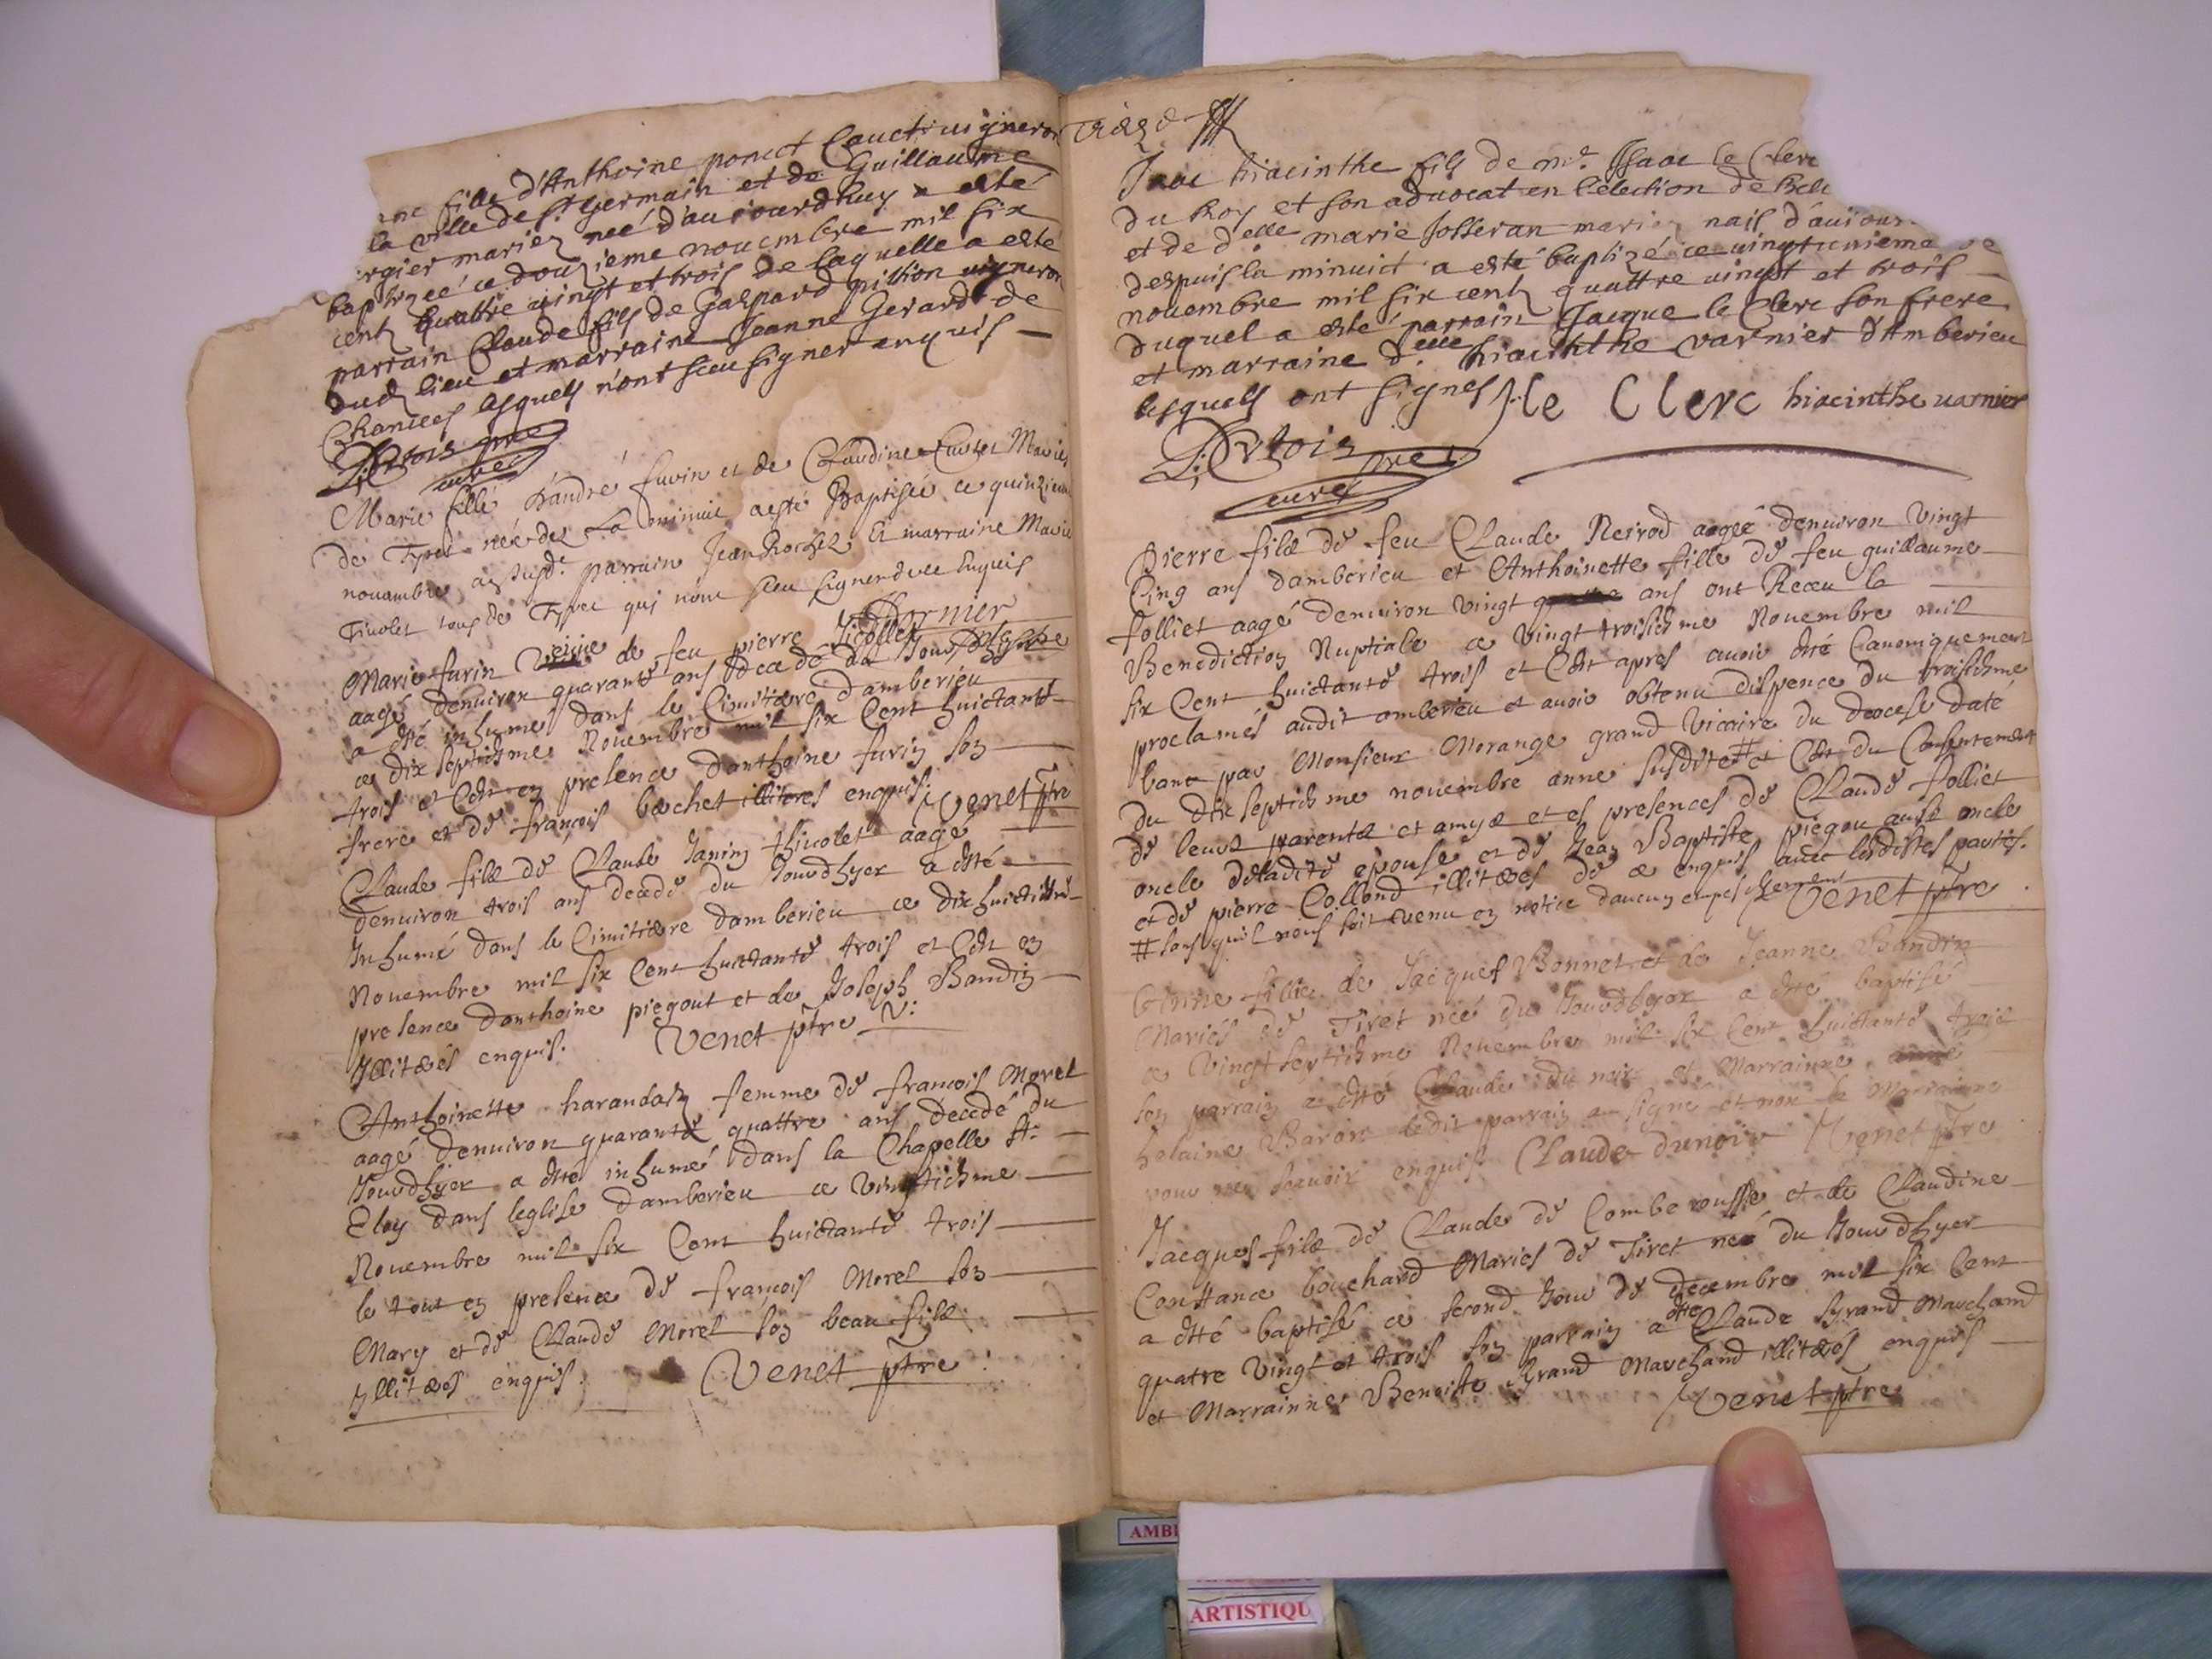 fille d'Anthoine ponct Cauct vigneron
la ville de St Germain et de Guillaume
rgier mariez neé d'aujourdhuy a esté
baptizeé ce douzieme nouembre mil six
centz quattre vingt et trois de laquelle a esté
parrain Claude fils de Gaspard vigneron
dud lieu et marraine Jeanne Gerard de
lesquels n'ont sceu signer enquis
curé
Marie fille d'andré furin et de Claudine Mariés
de Tyret née dez La minuit a esté Baptisée ce quinzieme
nouambre an susd. parrain Jean Rochez Et marraine Marie
Tiuolet tous de Tyret qui n'ont sceu signer enquis
Dornier
Marie furin Veuue de feu pierre
aagé denuiron quarante ans decedé du Jourdhyer
a dté inhumé dans le Cimitiere damberieu
ce dix septichme Nouembre mil six Cent huictante
trois et Cdt en presence danthoine furin son
frere et dé françois bochet illiteres enquis. Venet ptre
Claude filz dé Claude Janin thiuolet aagé
denuiron trois ans decedé du Jourdhyer a dté
Inhumé dans le Cimitiere damberieu ce dix huictichme
Nouembre mil six Cent huictante trois et Cdt en
presence danthoine piegout et de Joseph Bandin
Illiterés enquis. Venet ptre V:
Anthoinette femme dé françois Morel
aagé denuiron quarante quattre ans decedé du
Jourdhyer a dté inhumé dans la Chapelle St
Eloy dans leglise damberieu ce vingtichme
Nouembre mil six Cent huictanté trois
le tout en presence dé françois Morel son
Mary et dé Claude Morel son beau filz
Illiterés enquis. Venet ptre
hiacinthe fils de me Isaac le Clerc
du Roy et son aduocat en l'election de Bel
et de delle marie Josseran mariez nais d'auiour
despuis la minuict a esté baptizé ce vingtunieme de
nouembre mil six centz quattre vingt et trois
duquel a esté parrain Jacque le Clerc son frere
et marraine delle hiacinthe varnier d'Amberieu
lesquels ont signes J. le Clerc hiacinthe varnier
curé
Pierre filz dé feu Claude Neirod aageé denuiron Vingt
Cinq ans damberieu et Anthoinette fille dé feu guillaume
folliet aagé denuiron vingt ans ont Receu la
Benediction Nuptiale ce Vingt troisichme Nouembre mil
six Cent huictanté trois et Cdt apres auoir dté Canoniquement
proclamés audit amberieu et auoir obtenu dispence du troisichme
banc par Monsieur Morange grand Vicaire du diocese daté
du dix septichme nouembre anne susdite # et Cdt du Consentement
dé leurs parentz et amyz et es presences dé Claudé folliet
oncle deladité epousé et dé Jean Baptiste piegou aussi oncle
et dé pierre Collond illiterés dé ce enquis auec lesdittes parties.
# sans quil nous soit venu en notice daucun empeschement Venet ptre
Anne fillie de Jacques Bonnet et de Jeanne Bandin
Mariés dé Tiret neé du Jourdhyer a dté baptisé
ce Vingt septichme Nouembre mil six Cent huictanté trois
son parrain a dté Claude du noir et Marrainne
helaine Baron ledit parrain a signé et non la Marrainne
pour ne scauoir enquis. Claude dunoir Venet ptre
Jacques filz dé Claude dé Combe rousse et de Claudine
Conttance bouchard Mariés dé Tiret neé du Jourdhyer
a dté baptisé ce second Jour dé decembre mil six Cent
quatre Vingt et trois son parrain a dté Claude Brand Marchand
et Marrainne Benoiste Brand Marchand illiterés enquis
Venet ptre
AMBE
ARTISTIQU